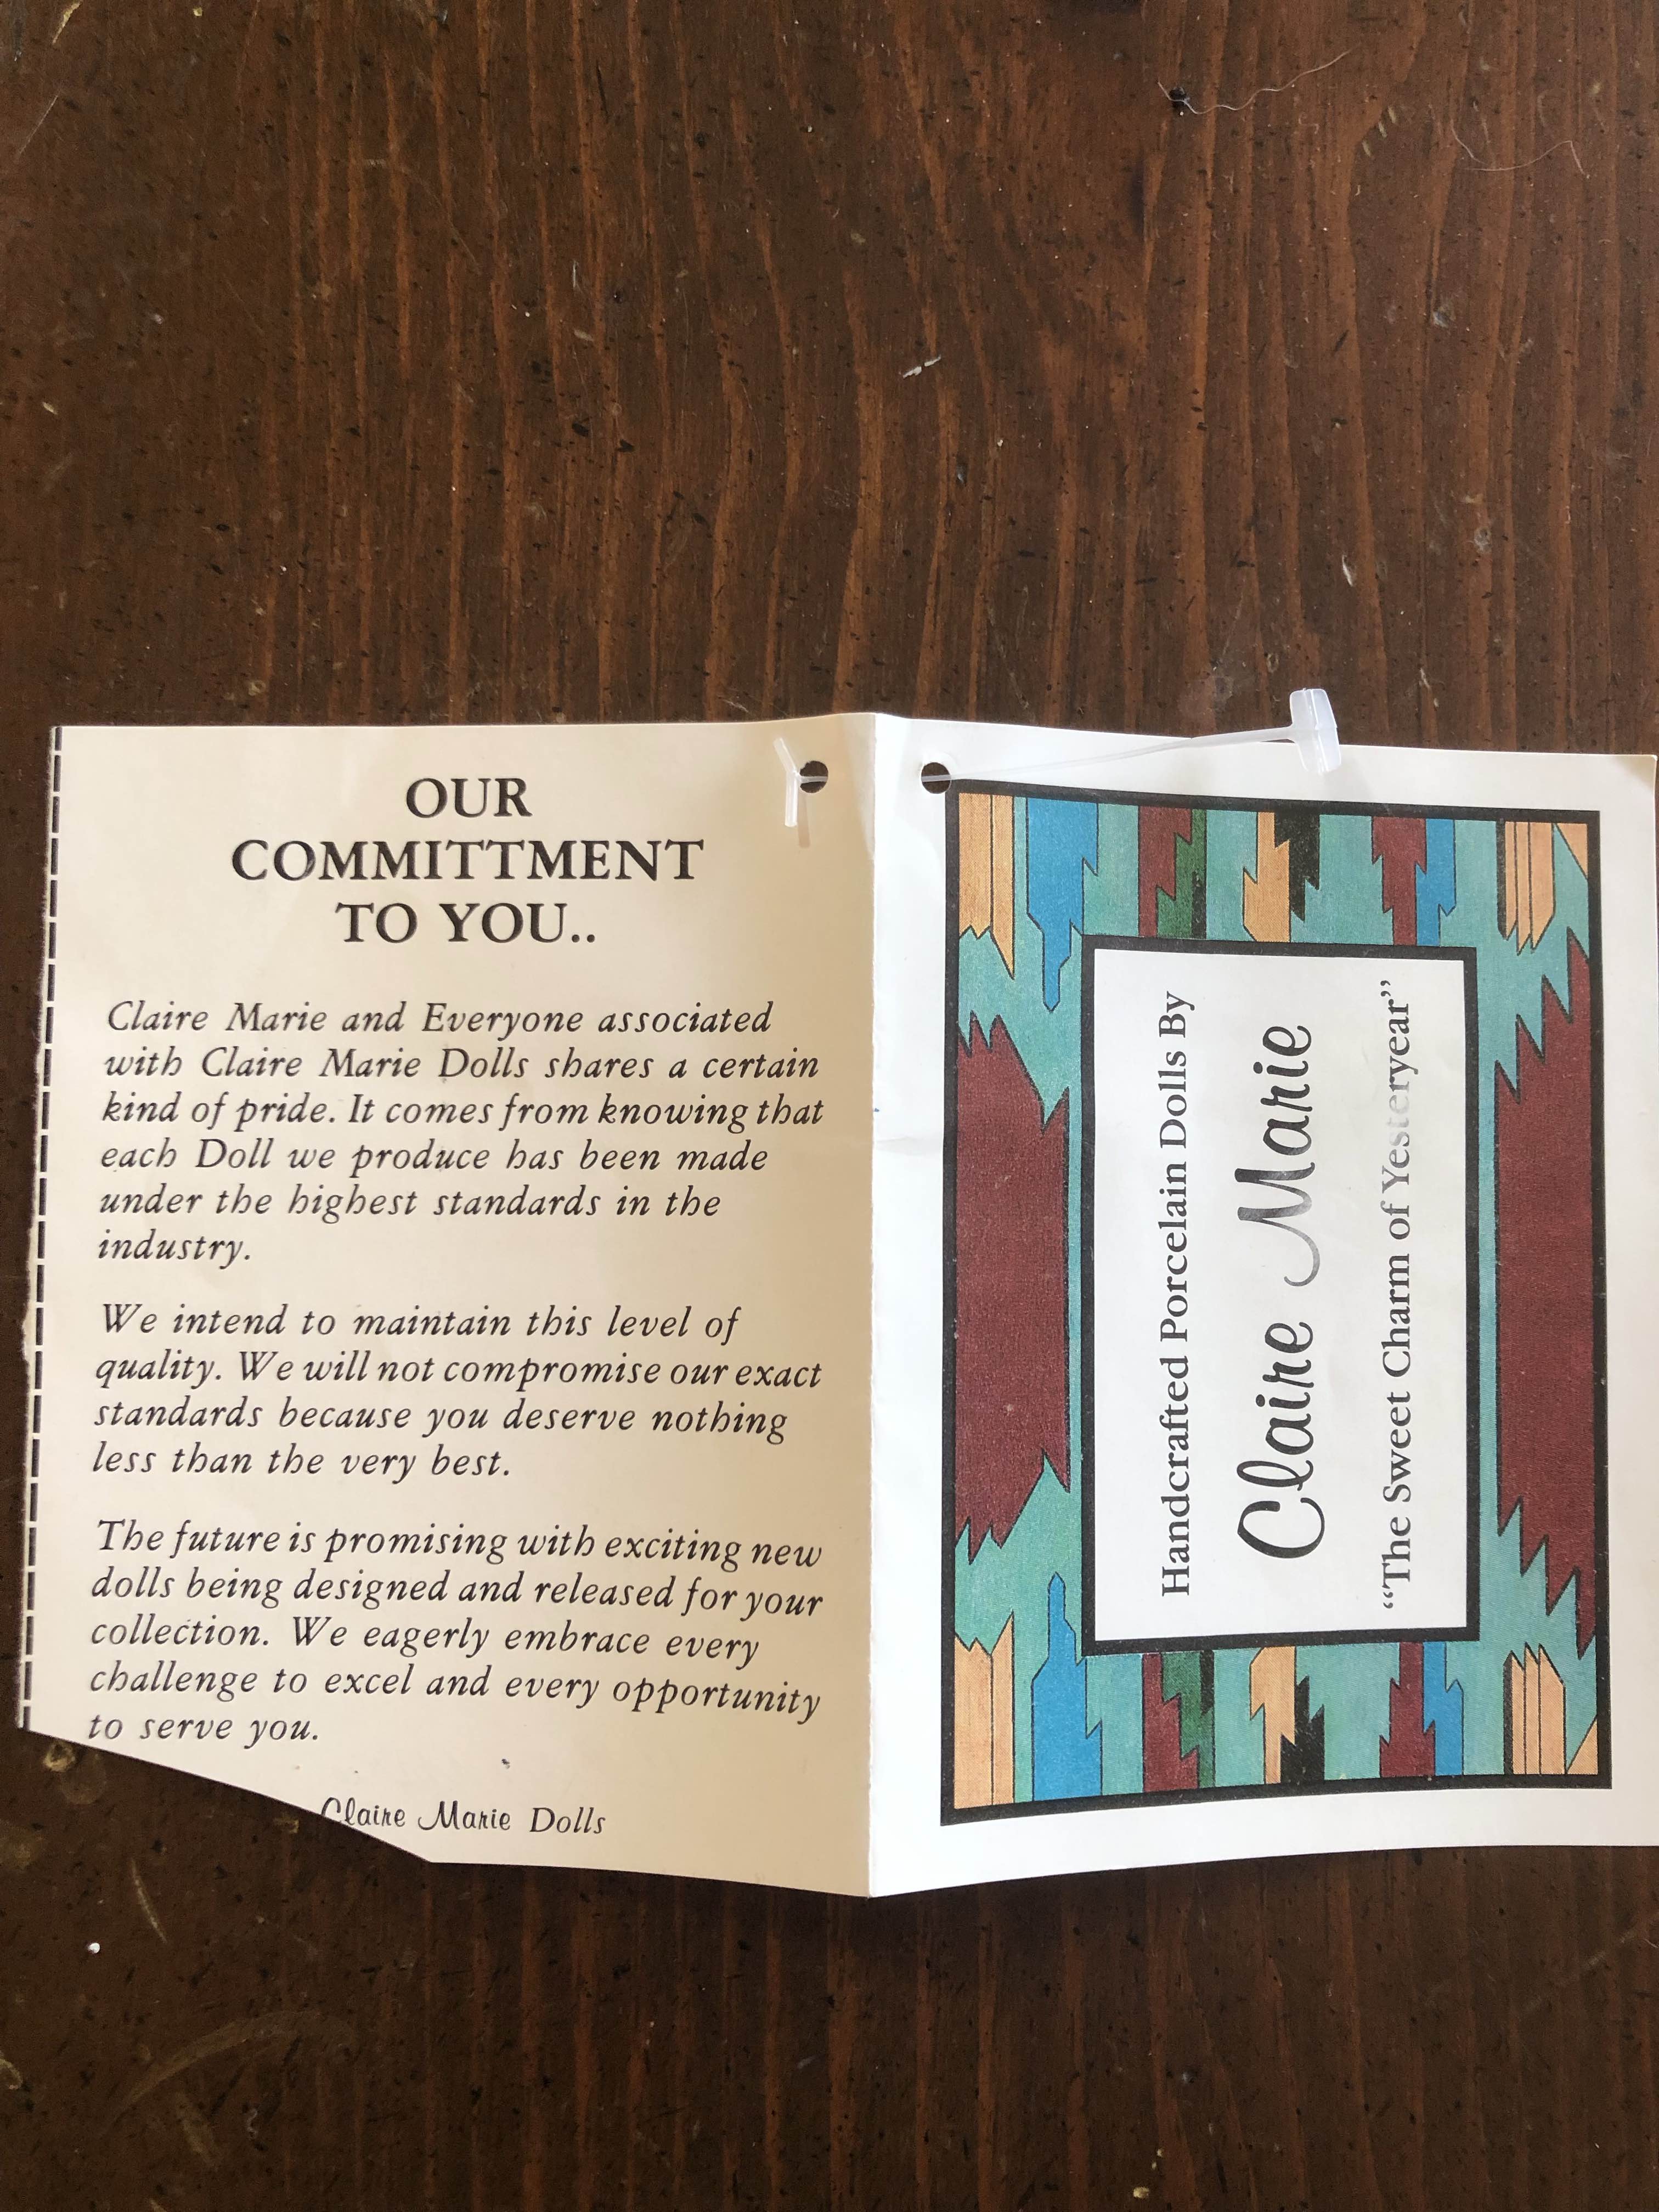 OUR
COMMITTMENT
TO YOU..
Claire Marie and Everyone associated
with Claire Marie Dolls shares a certain
kind of pride. It comes from knowing that
each Doll we produce has been made
under the highest standards in the
industry.
We intend to maintain this level of
quality. We will not compromise our exact
standards because you deserve nothing
less than the very best.
The future is promising with exciting new
dolls being designed and released for your
collection. We eagerly embrace every
challenge to excel and every opportunity
to serve you.
Claire Marie Dolls
Handcrafted Porcelain Dolls By
Claire Marie
“The Sweet Charm of Yesteryear”